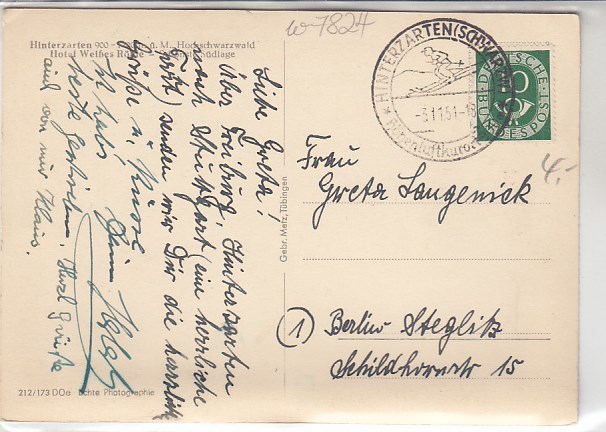 w 7824
Hinterzarten 900 - ü. M., Hochschwarzwald
Hotel Weißes Rößle - Südlage
Liebe Greta!
Über Freiburg, Hinterzarten
nach Stuttgart (eine herrliche
) senden wir Dir die herzlichsten
Grüße u. Küsse
Dein
Ich habe
beste gestochen. Herzl. Grüße
auch von mir Klaus.
212/173 DOe Echte Photographie
Gebr. Metz, Tübingen
HINTERZARTEN (SCHWARZW)
-3.11.51-16
Höhenluftkurort
DEUTSCHE
BUNDESPOST
10
4.-
Frau
Greta Langenick
1 Berlin Steglitz
Schildhornstr 15